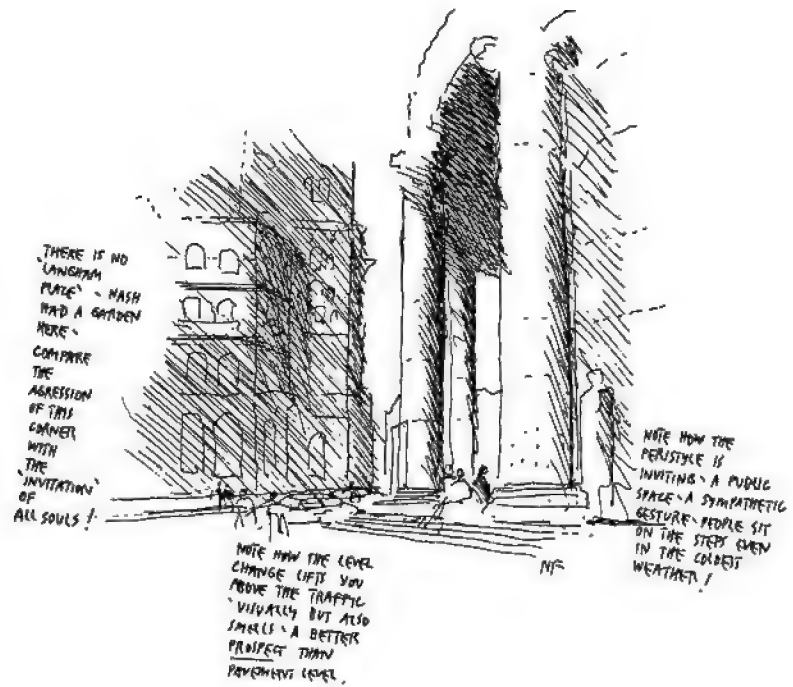 THERE IS NO
'LANGHAM
PLACE' - NASH
HAD A GARDEN
HERE -
COMPARE
THE
AGRESSION
OF THIS
CORNER
WITH
THE
'INVITATION'
OF
ALL SOULS!
NOTE HOW THE LEVEL
CHANGE LIFTS YOU
ABOVE THE TRAFFIC
- VISUALLY BUT ALSO
SMELLS - A BETTER
PROSPECT THAN
PAVEMENT LEVEL.
NF
NOTE HOW THE
PERISTYLE IS
INVITING - A PUBLIC
SPACE - A SYMPATHETIC
GESTURE - PEOPLE SIT
ON THE STEPS EVEN
IN THE COLDEST
WEATHER!